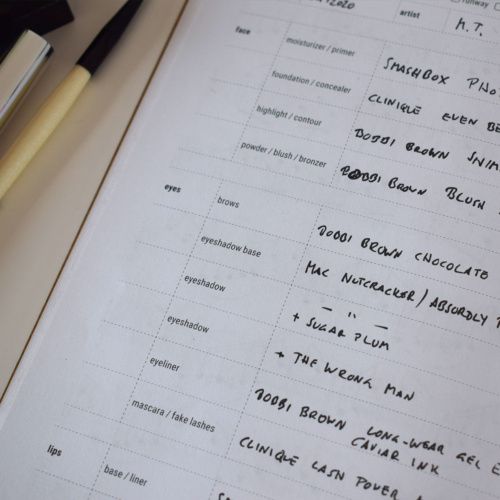 runway
/2020 artist M.T.
face moisturizer / primer SMASHBOX
foundation / concealer CLINIQUE EVEN
highlight / contour BOBBI BROWN
powder / blush / bronzer BOBBI BROWN BLUSH
eyes brows BOBBI BROWN CHOCOLATE
eyeshadow base MAC NUTCRACKER / ABSORDLY
eyeshadow — " —
+ SUGAR PLUM
eyeshadow + THE WRONG MAN
eyeliner BOBBI BROWN LONG-WEAR GEL
CAVIAR INK
mascara / fake lashes CLINIQUE LASH POWER
lips base / liner